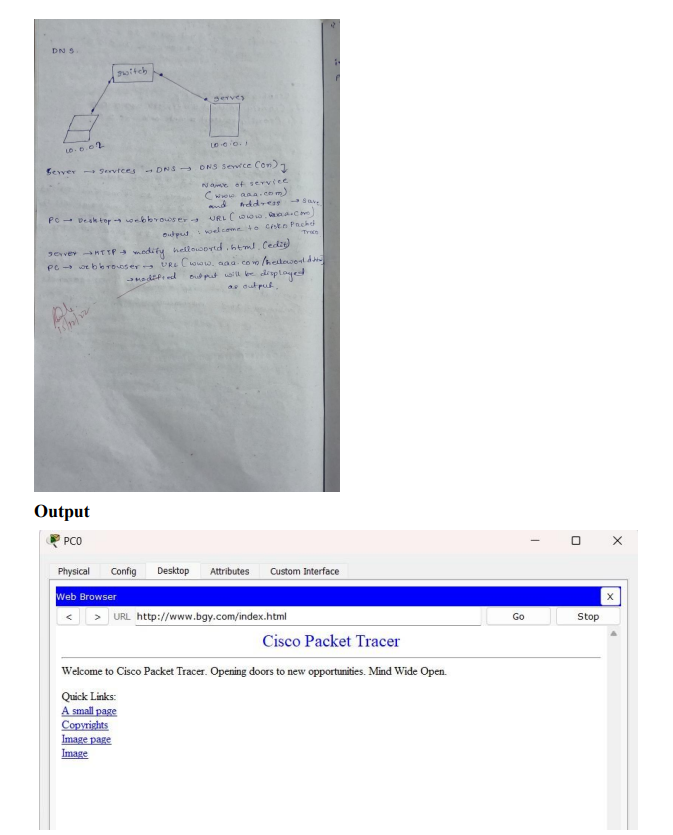 DNS.
switch
server
10.0.0.2
10.0.0.1
Server → services → DNS → DNS service (on)
Name of service
(www.aaa.com)
and Address → Save
PC → Desktop → webbrowser → URL (www.aaa.com)
output : welcome to Cisco Packet
server → HTTP → modify helloworld.html (edit)
PC → webbrowser → URL (www.aaa.com/helloworld.html
→ modified output will be displayed
as output.
Output
PC0
Physical Config Desktop Attributes Custom Interface
Web Browser X
< > URL http://www.bgy.com/index.html Go Stop
Cisco Packet Tracer
Welcome to Cisco Packet Tracer. Opening doors to new opportunities. Mind Wide Open.
Quick Links:
A small page
Copyrights
Image page
Image